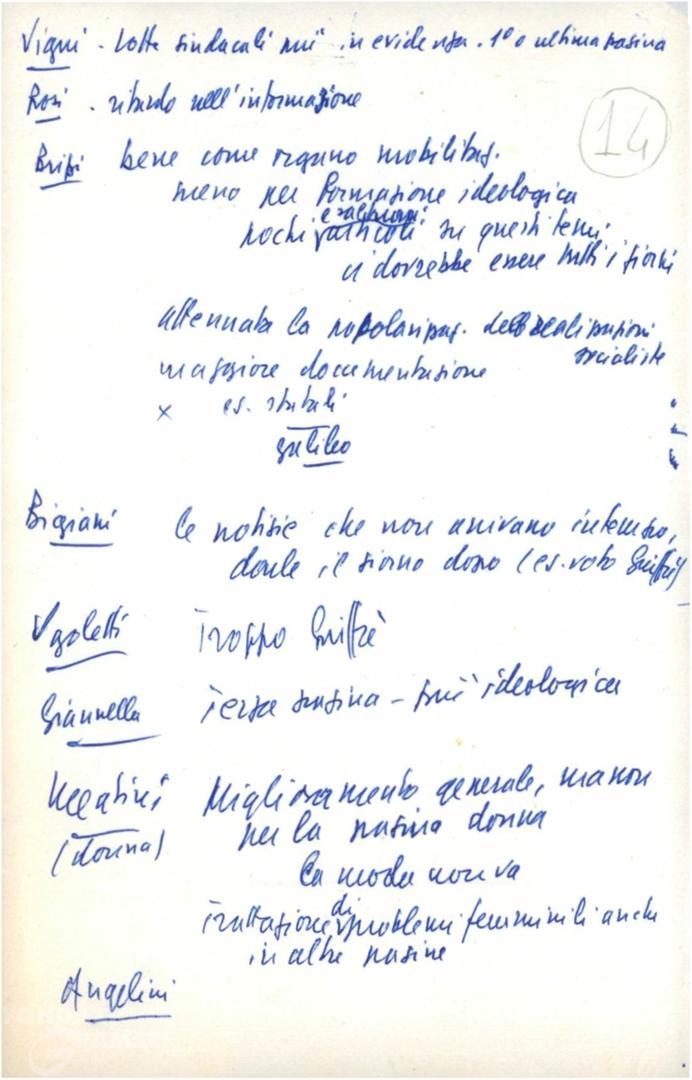 Vigni - Lotte sindacali più in evidenza. 1° o ultima pagina
Rosi - ritardo nell'informazione
14
bene come organo mobilitaz.
meno per formazione ideologica
pochi articoli su questi temi,
ci dovrebbe essere tutti i giorni
attenuata la popolarizzaz. delle realizzazioni
socialiste
maggiore documentazione
x es. statali
galileo
Bigiani le notizie che non arrivano in tempo,
darle il giorno dopo (es. voto Giuffrè)
Ugoletti Troppo Giuffrè
Giannella Terza pagina - più ideologica
Miglioramento generale, ma non
(donna) per la pagina donna
La moda non va
trattazione di problemi femminili anche
in altre pagine
Angelini